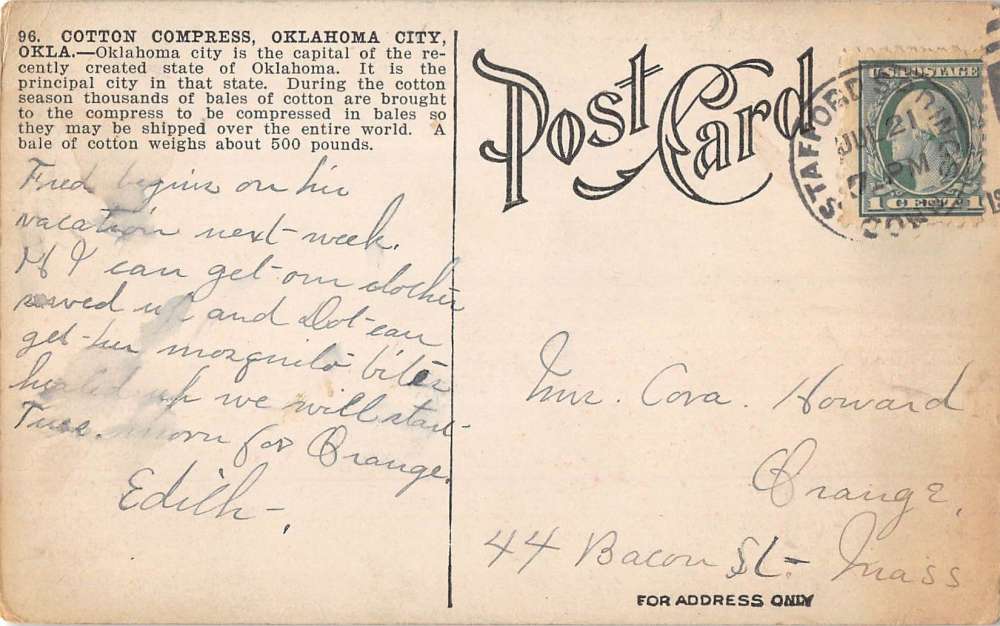 96. COTTON COMPRESS, OKLAHOMA CITY,
OKLA.—Oklahoma city is the capital of the re-
cently created state of Oklahoma. It is the
principal city in that state. During the cotton
season thousands of bales of cotton are brought
to the compress to be compressed in bales so
they may be shipped over the entire world. A
bale of cotton weighs about 500 pounds.
Fred begins on his
vacation next week.
If I can get our clothes
sewed up and Dot can
get her mosquito bites
healed up we will start
Tues. morn for Orange.
Edith.
Post Card
U.S. POSTAGE
1 CENT 1
STAFFORD SPRINGS
JUL 21
7 PM
CONN.
Mrs. Cora. Howard
Orange,
44 Bacon St- Mass
FOR ADDRESS ONLY